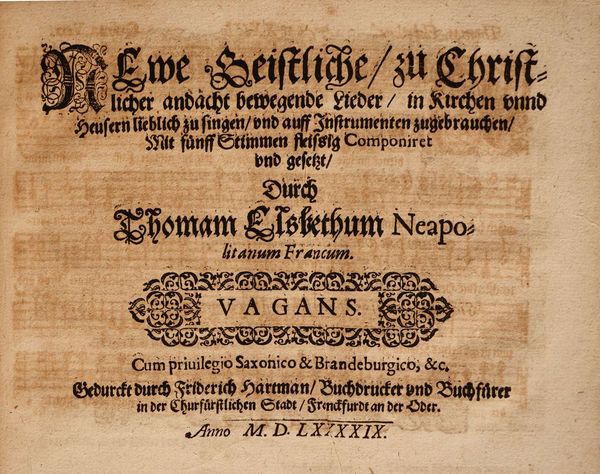 NEwe Geistliche/ zu Christ-
licher andacht bewegende Lieder/ in Kirchen vnnd
Heusern lieblich zu singen/ vnd auff Instrumenten zugebrauchen/
Mit fünff Stimmen fleissig Componiret
vnd gesetzt/
Durch
Thomam Elsbethum Neapo-
litanum Francum.
VAGANS.
Cum priuilegio Saxonico & Brandeburgico, &c.
Gedurckt durch Friderich Hartman/ Buchdrucker vnd Buchfürer
in der Churfürstlichen Stadt/ Franckfurdt an der Oder.
Anno M. D. LXXXXIX.